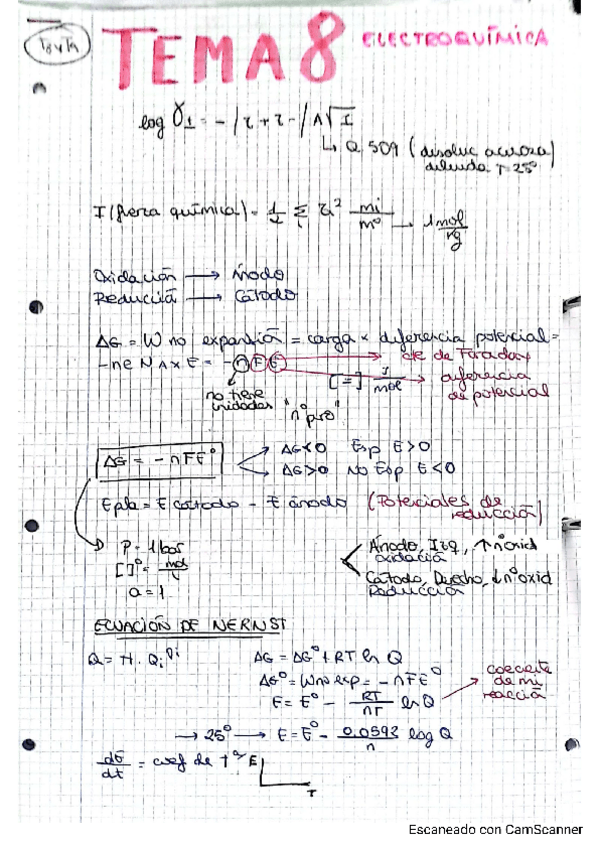 TEMA 8 ELECTROQUÍMICA
log γ± = - |z+z-| A√I
↳ 0.509 (disoluc acuosa)
diluida T 25º
I (fuerza química) = 1/2 Σi zi² mi/mº → 1 mol/kg
Oxidación → Ánodo
Reducción → Cátodo
ΔG = W no expansión = carga × diferencia potencial =
-ne NA × E = -nFE → cte de Faraday
[=] J/mol → diferencia de potencial
no tiene unidades "nº puro"
ΔG = -nFEº
ΔG<0 Esp E>0
ΔG>0 No Esp E<0
E pila = E cátodo - E ánodo (Potenciales de reducción)
P = 1 bar
[ ]º = mol/L
a = 1
Ánodo, Izq, ↑nºoxid
oxidación
Cátodo, Derecho, ↓nºoxid
Reducción
ECUACIÓN DE NERNST
ΔG = ΔGº + RT ln Q
ΔGº = W no exp = -nFEº
E = Eº - RT/nF ln Q → cociente de mi reacción
→ 25º → E = Eº - 0.0592/n log Q
= coef de Tª
E
T
Escaneado con CamScanner